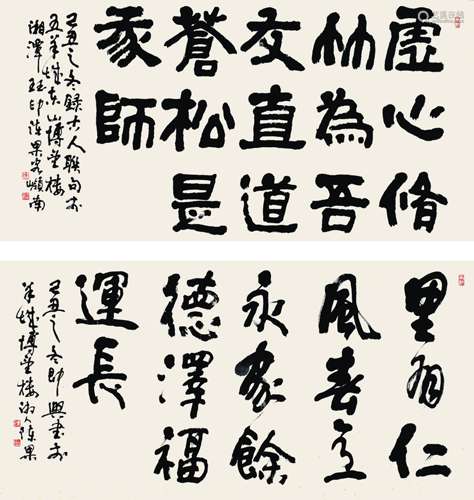 虛心脩
竹為吾
友直道
蒼松是
我師
己丑之冬錄古人聯句於
五羊城東山博望樓
湘潭 陳果客嶺南
里有仁
風春意
永家餘
德澤福
運長
己丑之冬即興書於
羊城博望樓湘人陳果